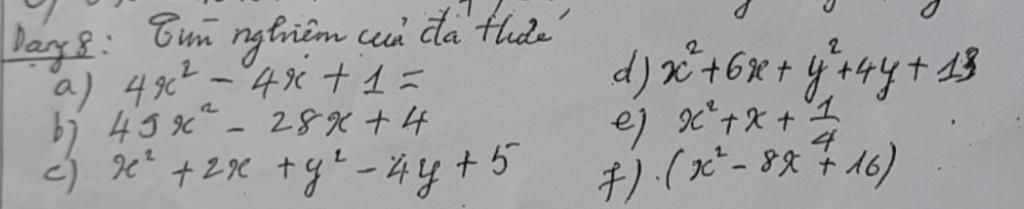 Dạng 8: Tìm nghiệm của đa thức
a) 4x² - 4x + 1 =
b) 49x² - 28x + 4
c) x² + 2x + y² - 4y + 5
d) x² + 6x + y² + 4y + 13
e) x² + x + 1/4
f) (x² - 8x + 16)